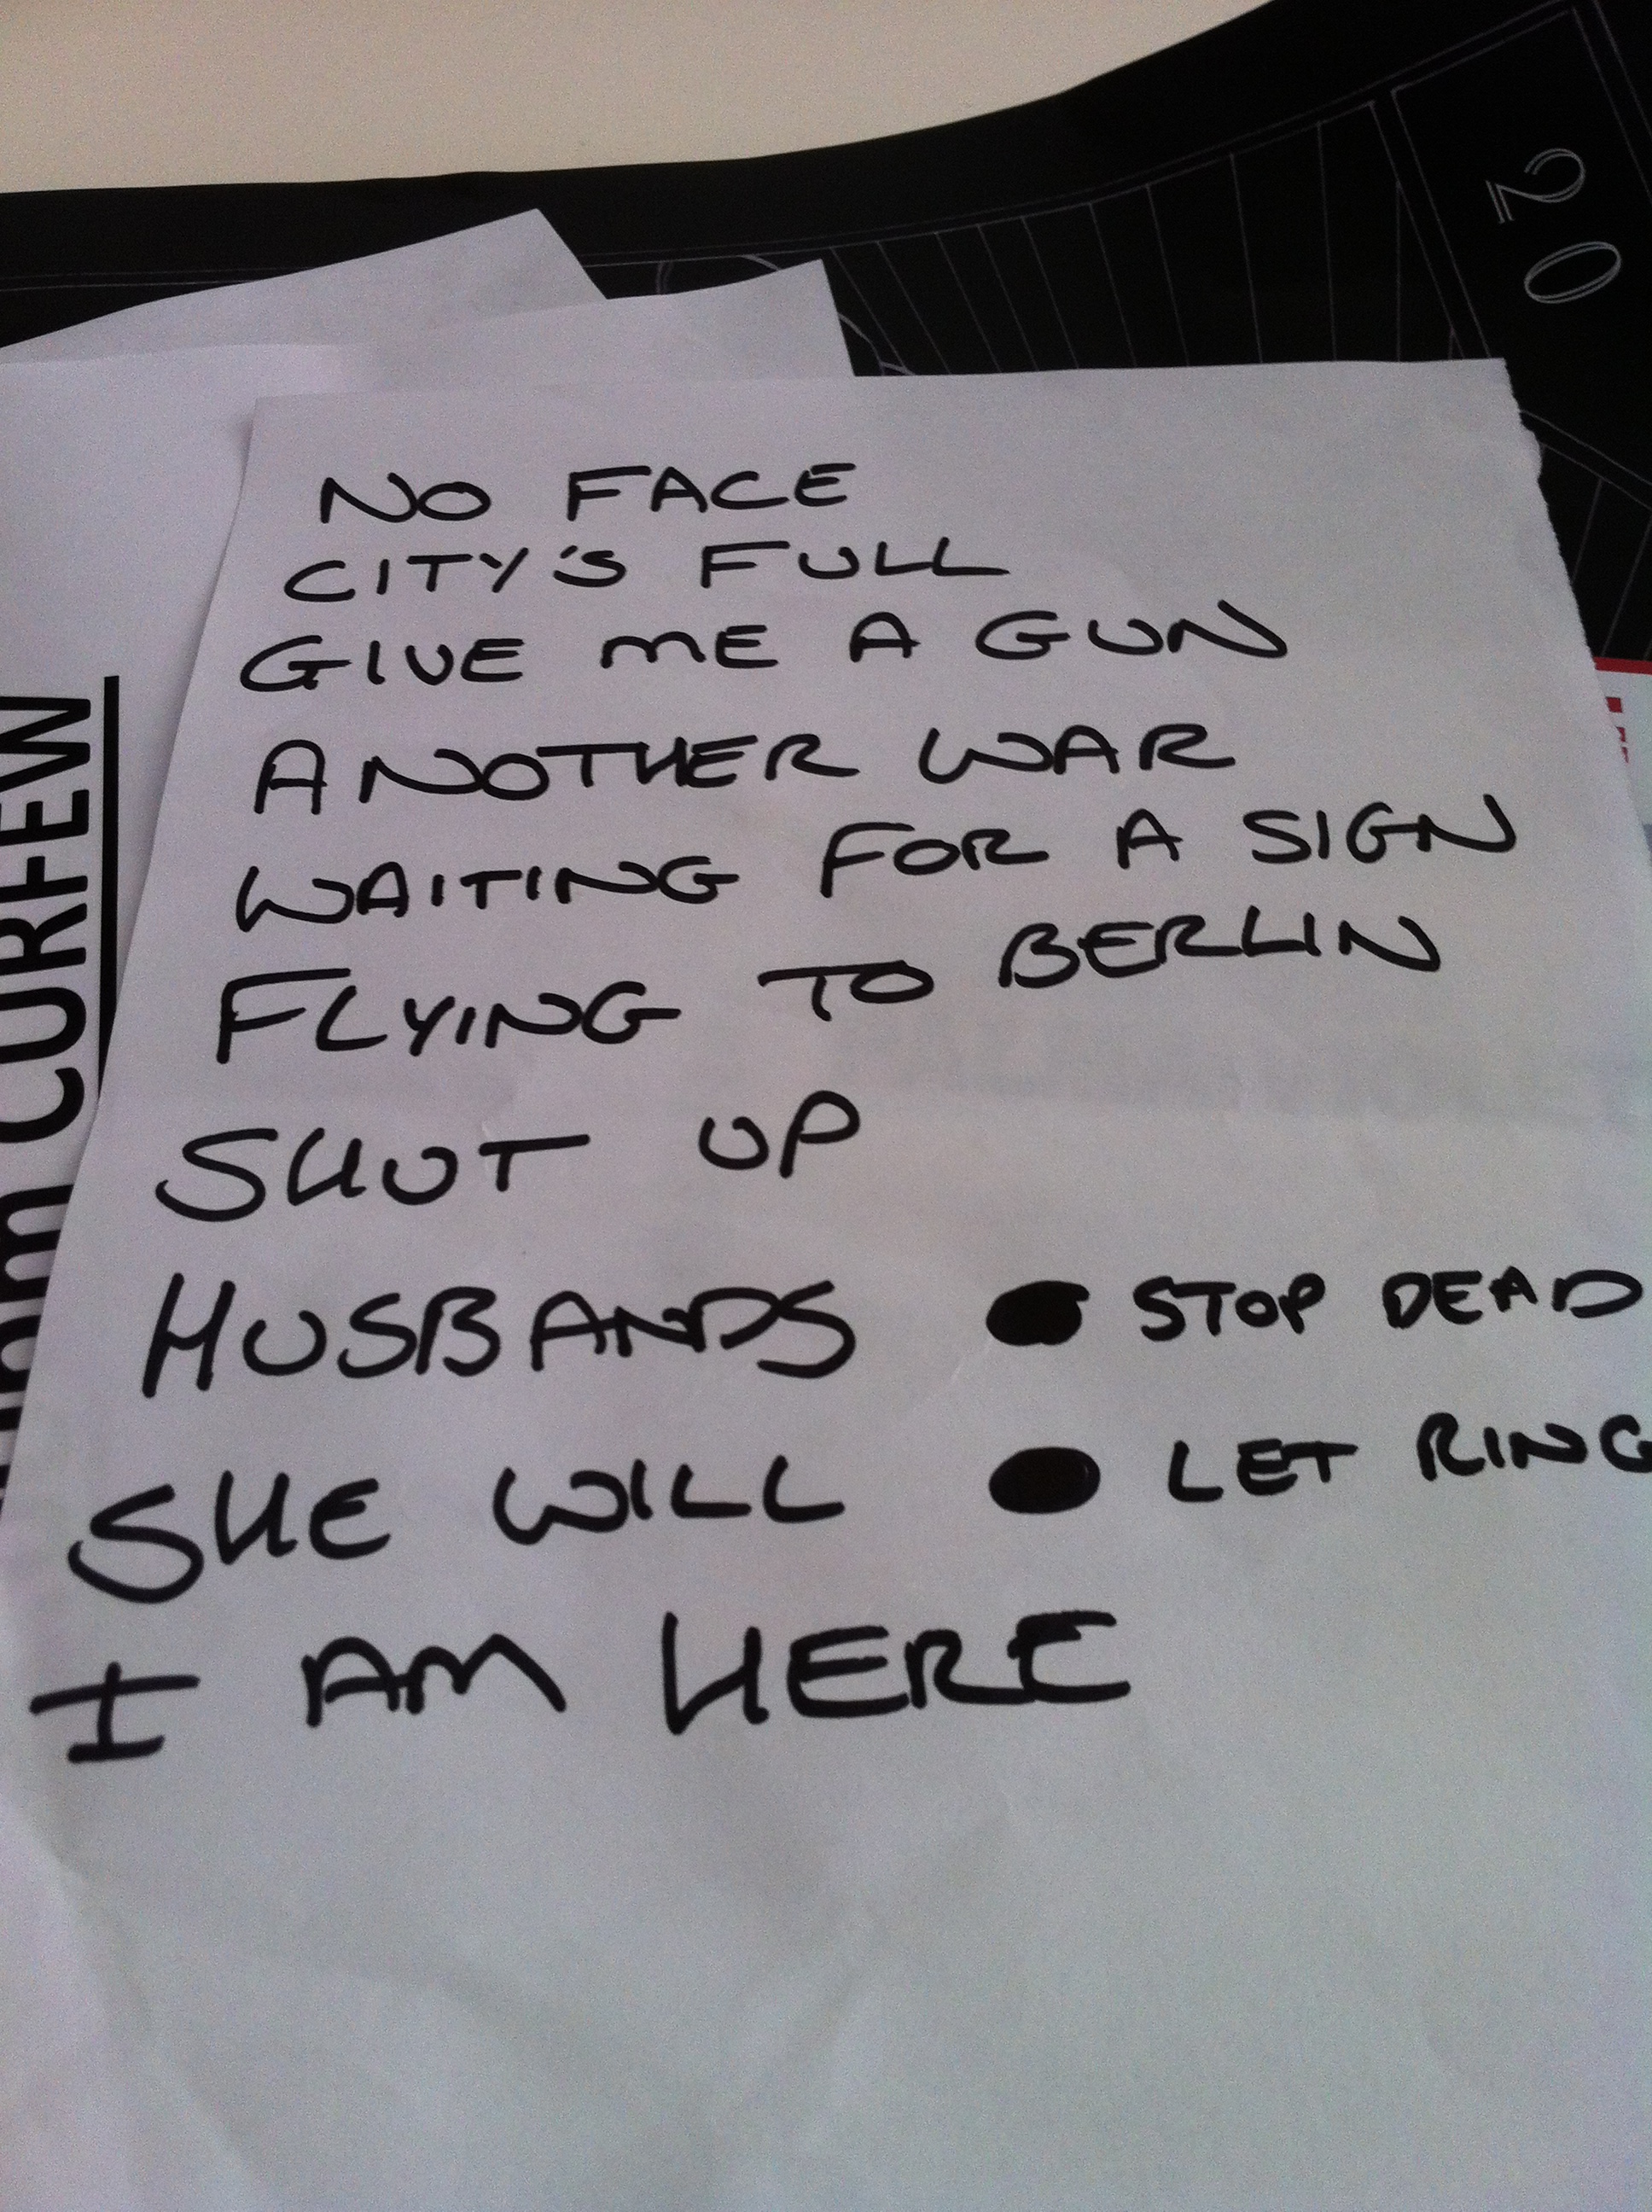 20
NO FACE
CITY'S FULL
GIVE ME A GUN
ANOTHER WAR
WAITING FOR A SIGN
FLYING TO BERLIN
SHUT UP
HUSBANDS ● STOP DEAD
SHE WILL ● LET RING
I AM HERE
CURFEW